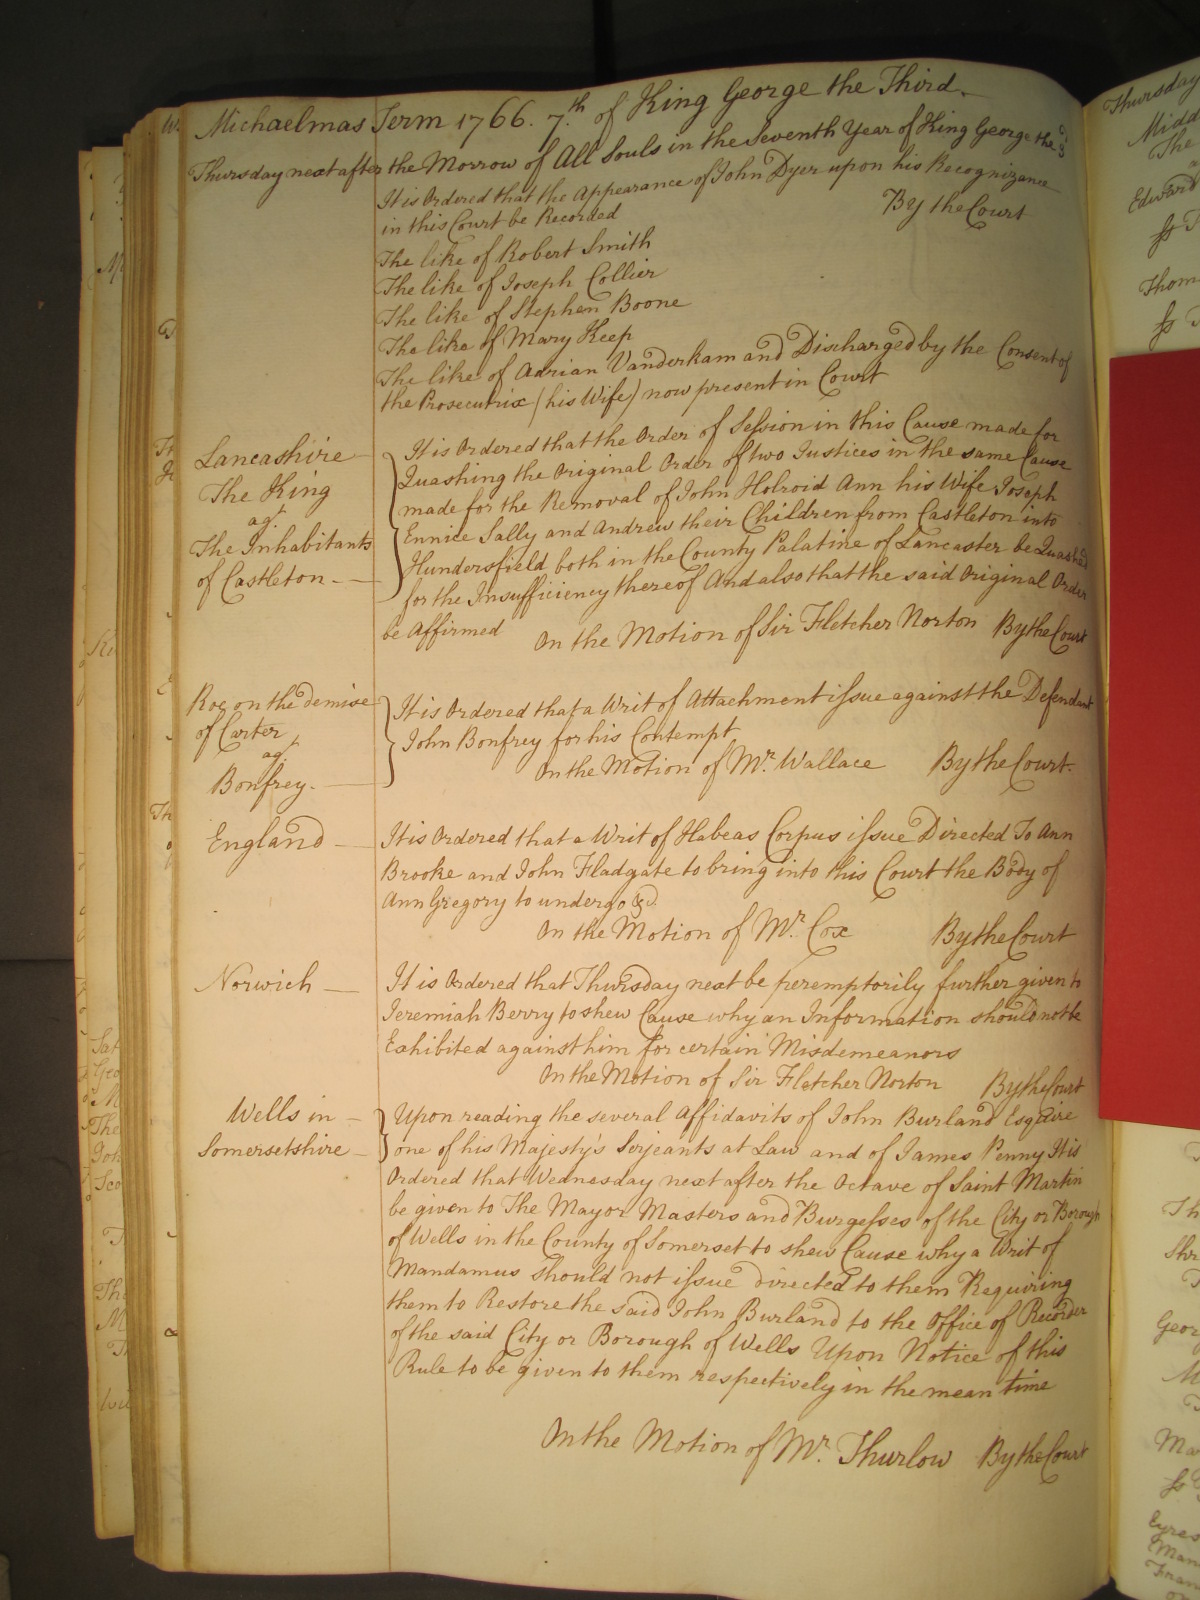 Michaelmas Term 1766. 7.th of King George the Third.
Thursday next after the Morrow of All Souls in the Seventh Year of King George the 3d
It is Ordered that the Appearance of John Dyer upon his Recognizance
in this Court be Recorded By the Court
The like of Robert Smith
The like of Joseph Collier
The like of Stephen Boone
The like of Mary Keep
The like of Adrian Vanderkam and Discharged by the Consent of
the Prosecutrix (his Wife) now present in Court
Lancashire
The King
agt
The Inhabitants
of Castleton
It is Ordered that the Order of Session in this Cause made for
Quashing the Original Order of two Justices in the same Cause
made for the Removal of John Holroid Ann his Wife Joseph
Ennice Sally and Andrew their Children from Castleton into
Hundersfield both in the County Palatine of Lancaster be Quashed
for the Insufficiency thereof And also that the said Original Order
be Affirmed On the Motion of Sir Fletcher Norton By the Court
Roe on the demise
of Carter
agt
Bonfrey.
It is Ordered that a Writ of Attachment issue against the Defendant
John Bonfrey for his Contempt
On the Motion of Mr. Wallace By the Court.
England
It is Ordered that a Writ of Habeas Corpus issue Directed To Ann
Brooke and John Fladgate to bring into this Court the Body of
Ann Gregory to undergo &c.
On the Motion of Mr. Cox By the Court
Norwich
It is Ordered that Thursday next be peremptorily further given to
Jeremiah Berry to shew Cause why an Information should not be
Exhibited against him for certain Misdemeanors
On the Motion of Sir Fletcher Norton By the Court
Wells in
Somersetshire
Upon reading the several Affidavits of John Burland Esquire
one of his Majesty's Serjeants at Law and of James Penny It is
Ordered that Wednesday next after the Octave of Saint Martin
be given to The Mayor Masters and Burgesses of the City or Borough
of Wells in the County of Somerset to shew Cause why a Writ of
Mandamus should not issue directed to them Requiring
them to Restore the said John Burland to the Office of Recorder
of the said City or Borough of Wells Upon Notice of this
Rule to be given to them respectively in the mean time
On the Motion of Mr. Thurlow By the Court
Thursday
The
Edward